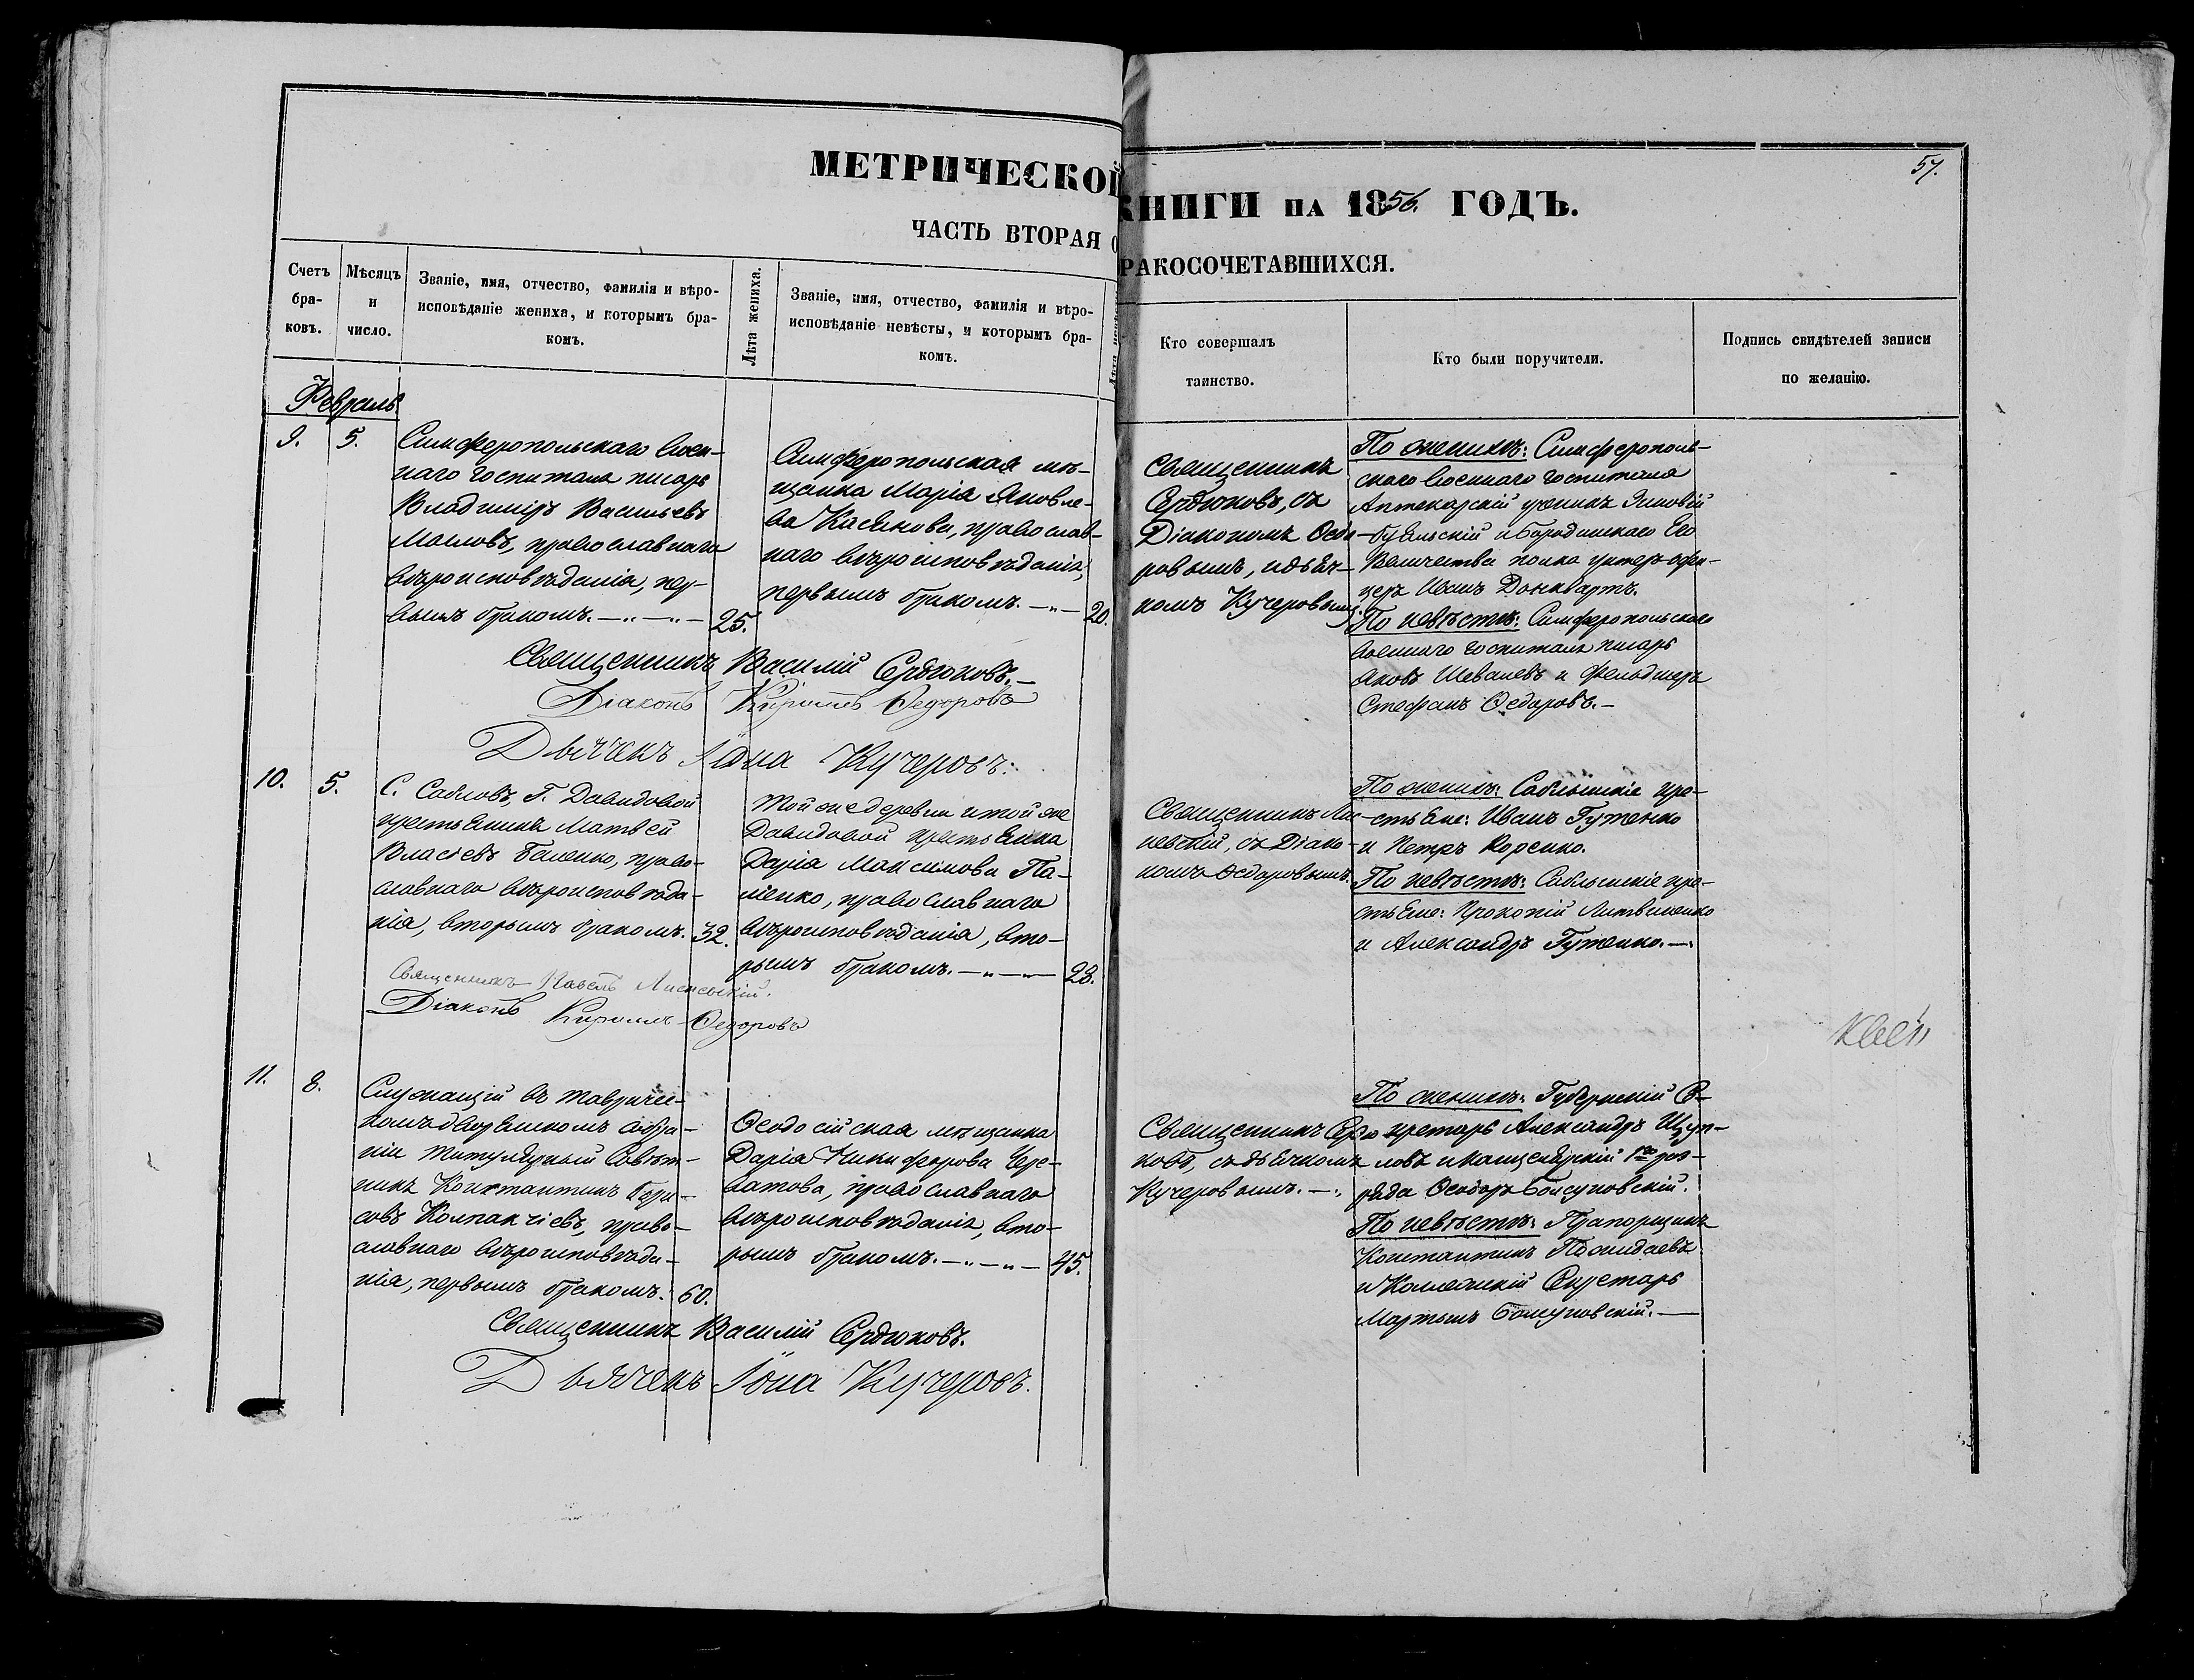 57.
МЕТРИЧЕСКОЙ КНИГИ НА 1856. ГОДЪ.
ЧАСТЬ ВТОРАЯ О БРАКОСОЧЕТАВШИХСЯ.
Счетъ бра-
ковъ.
Мѣсяцъ
и
число.
Званіе, имя, отчество, фамилія и вѣро-
исповѣданіе жениха, и которымъ бра-
комъ.
Лѣта жениха.
Званіе, имя, отчество, фамилія и вѣро-
исповѣданіе невѣсты, и которымъ бра-
комъ.
Кто совершалъ
таинство.
Кто были поручители.
Подпись свидѣтелей записи
по желанію.
Февраль
9.
5.
Симферопольскаго Воен-
наго Госпиталя писарь
Владиміръ Васильевъ
Масловъ, православнаго
вѣроисповѣданія, пер-
вымъ бракомъ.
25.
Симферопольская мѣ-
щанка Марія Яковле-
ва Касьянова, православ-
наго вѣроисповѣданія,
первымъ бракомъ.
20.
Священникъ
Сердюковъ, съ
Діакономъ Ѳедо-
ровымъ, и дьяч-
комъ Кучеровымъ.
По женихѣ: Симферополь-
скаго Военнаго Госпиталя
Аптекарскій ученикъ
и Бородинскаго Его
Величества полка унтеръ-офи-
церъ Иванъ
По невѣстѣ: Симферопольскаго
военнаго госпиталя писарь
Яковъ Шевалевъ и Фельдшеръ
Стефанъ Ѳедоровъ.
Священникъ Василій Сердюковъ.
Діаконъ Кириллъ Ѳедоровъ
Дьячекъ Іона Кучеровъ.
10.
5.
С. Сабловъ, Г. Давыдовой
крестьянинъ Матвей
Власіевъ Беленко, право-
славнаго вѣроисповѣда-
нія, вторымъ бракомъ.
32.
Той же деревни и той же
Давидовой крестьянка
Дарія Максимова Па-
ліенко, православнаго
вѣроисповѣданія, вто-
рымъ бракомъ.
28.
Священникъ Лис-
невскій, съ Діако-
номъ Ѳедоровымъ.
По женихѣ: Саблынскіе кре-
стьяне: Иванъ Гутенко
и Петръ Коренко.
По невѣстѣ: Саблынскіе кре-
стьяне: Прокопій Литвиненко
и Александръ Гутенко.
Священникъ Павелъ
Діаконъ Кириллъ Ѳедоровъ
11.
8.
Служащій въ Тавричес-
комъ дворянскомъ собра-
ніи Титулярный Совѣт-
никъ Константинъ Бори-
совъ Колпакчіевъ, право-
славнаго вѣроисповѣда-
нія, первымъ бракомъ.
60.
Ѳеодосійская мѣщанка
Дарія Никифорова Чре-
ватова, православнаго
вѣроисповѣданія, вто-
рымъ бракомъ.
45.
Священникъ Сердю-
ковъ, съ дьячкомъ
Кучеровымъ.
По женихѣ: Губернскій Се-
кретарь Александръ Щуп-
ловъ и канцелярскій 1го раз-
ряда Ѳеодоръ Болсуновскій.
По невѣстѣ: Прапорщикъ
Константинъ Пожидаевъ
и Коллежскій Секретарь
Мартынъ Болсуновскій.
Священникъ Василій Сердюковъ.
Дьячекъ Іона Кучеровъ.